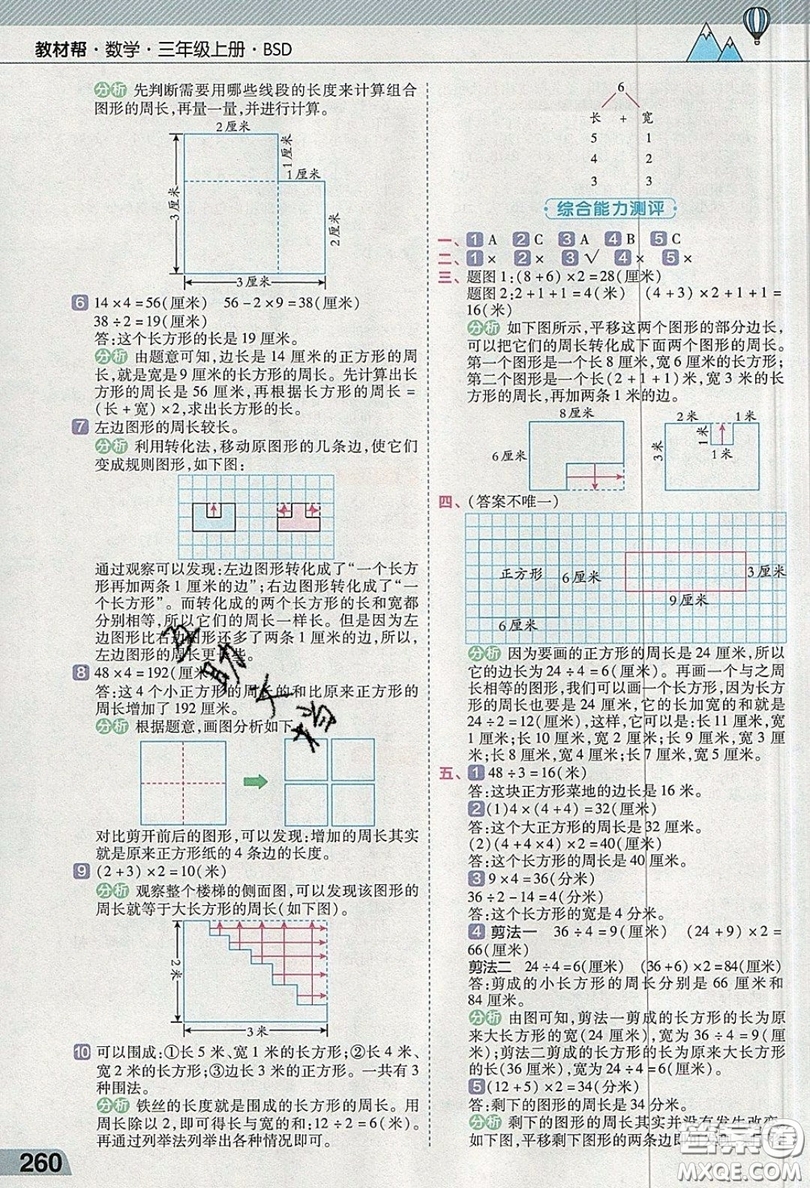 教材帮·数学·三年级上册·BSD
分析 先判断需要用哪些线段的长度来计算组合
图形的周长,再量一量,并进行计算。
2厘米
1厘米
3厘米
2厘米
3厘米
6 14×4=56(厘米) 56-2×9=38(厘米)
38÷2=19(厘米)
答:这个长方形的长是19厘米。
分析 由题意可知,边长是14厘米的正方形的周
长,就是宽是9厘米的长方形的周长。先计算出长
方形的周长是56厘米,再根据长方形的周长=
(长+宽)×2,求出长方形的长。
7 左边图形的周长较长。
分析 利用转化法,移动原图形的几条边,使它们
变成规则图形,如下图:
通过观察可以发现:左边图形转化成了“一个长方
形再加两条1厘米的边”;右边图形转化成了“一
个长方形”。而转化成的两个长方形的长和宽都
分别相等,所以它们的周长一样长。但是因为左
边图形比右边图形还多了两条1厘米的边,所以,
左边图形的周长更长些。
8 48×4=192(厘米)
答:这4个小正方形的周长的和比原来正方形的
周长增加了192厘米。
分析 根据题意,画图分析如下
对比剪开前后的图形,可以发现:增加的周长其实
就是原来正方形纸的4条边的长度。
9 (2+3)×2=10(米)
分析 观察整个楼梯的侧面图,可以发现该图形的
周长就等于大长方形的周长(如下图)。
2米
3米
10 可以围成:①长5米、宽1米的长方形;②长4
米、宽2米的长方形;③边长3米的正方形。一共有3
种围法。
分析 铁丝的长度就是围成的长方形的周长。用
周长除以2,即可得长与宽的和:12÷2=6(米)。
再通过列举法列举出各种情况即可。
260
6
长 + 宽
5 1
4 2
3 3
综合能力测评
一、1 A 2 C 3 A 4 B 5 C
二、1 × 2 × 3 √ 4 × 5 ×
三、题图1:(8+6)×2=28(厘米)
题图2:2+1+1=4(米) (4+3)×2+1×2=
16(米)
分析 如下图所示,平移这两个图形的部分边长,
可以把它们的周长转化成下面两个图形的周长。
第一个图形是一个长8厘米,宽6厘米的长方形;
第二个图形是一个长(2+1+1)米,宽3米的长方
形,再加两条1米的边。
8厘米
6厘米
2米 1米
3米
1米
1米
四、(答案不唯一)
正方形
6厘米
6厘米
3厘米
9厘米
分析 因为要画的正方形的周长是24厘米,所以
它的边长为24÷4=6(厘米)。再画一个与之周
长相等的图形,我们可以画一个长方形,因为长方
形的周长也要是24厘米,它的长加宽的和就是
24÷2=12(厘米),这样,它可以为:长11厘米,宽
1厘米;长10厘米,宽2厘米;长9厘米,宽3厘
米;长8厘米,宽4厘米;长7厘米,宽5厘米。
五、1 48÷3=16(米)
答:这块正方形菜地的边长是16米。
2 (1)4×(4+4)=32(厘米)
答:这个大正方形的周长是32厘米。
(2)(4+4×4)×2=40(厘米)
答:这个长方形的周长是40厘米。
3 9×4=36(分米)
36÷2-14=4(分米)
答:这个长方形的宽是4分米。
4 剪法一 36÷4=9(厘米) (24+9)×2=
66(厘米)
剪法二 24÷4=6(厘米) (36+6)×2=84(厘米)
答:剪成的小长方形的周长分别是66厘米和
84厘米。
分析 由图可知,剪法一剪成的长方形的长为原
来大长方形的宽(24厘米),宽为36÷4=9(厘
米);剪法二剪成的长方形的长为原来大长方形
的长(36厘米),宽为24÷4=6(厘米)。
5 (12+5)×2=34(厘米)
答:剩下的图形的周长是34厘米。
分析 剩下的图形的周长其实并没有发生改变,
如下图,平移剩下图形的两条边即
MXQE.COM